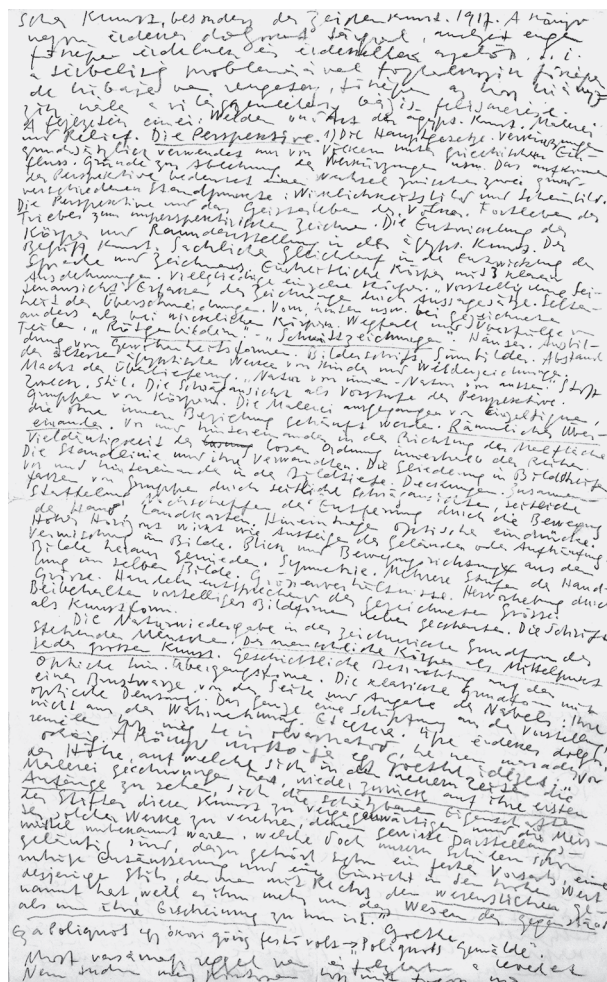 scher Kunst, besonders der Zeichenkunst. 1919. A könyv
nagyon érdemes dolognak
a térbeliség problémájával foglalkozik
A fejezetek címei: Werden und Art der ägypt. Kunst, Malerei
und Relief. Die Perspektive. 1) Die Hauptgesetze. Verkürzungen
grundsätzlich verwendet nur von Völkern unter griechischem Ein-
fluss. Gründe zur Ablehnung der Verkürzungen usw. Das aufkommen
der Perspektive bedeutet einen Wechsel zwischen zwei grund-
verschiedenen Standpunkte: Wirklichkeitsbild und Scheinbild.
Die Perspektive und das Geistesleben der Völker. Fortleben des
Triebes zum unperspektivischen Zeichnen. Die Entwicklung der
Körper und Raumdarstellung in der ägypt. Kunst. Der
Begriff Kunst. Sachliche Gliederung in die Entwicklung der
Sprache und Zeichnens. Einheitliche Körper mit 3 klaren
Ausdehnungen. Vielgliedrige einzelne Körper. "Vorstellig" Sei-
tenansicht. Erfassen der Zeichnung durch Aussagesätze. Selten-
heit der Überschneidungen. Von hinten usw. bei gezeichneten
anders als bei wirklichen Körpern. Wegfall und Überfülle von
Teilen. "Röntgenbildern" – "Schnittzeichnungen". Häuser. Ausbil-
dung von Gewohnheitsformen. Bilderschrift. Sinnbilder. Abstand
der älteren ägyptische Werke von Kinder und Wildenzeichnung.
Macht der Überlieferung. "Natur von innen – Natur von aussen". Stoff
Zweck. Stil. Die Schrägansicht als Vorstufe der Perspektive.
Gruppen von Körpern. Die Malerei ausgegangen von Einzeldingen,
die ohne innere Beziehung gehäuft werden. Räumliches Über-
einander. Vor und hintereinander in der Richtung der Malfläche
Vieldeutigkeit der losen Ordnung innerhalb der Reihen.
Die Standlinie und ihre Verwandten. Die Gliederung in Bildstreifen
Vor und hintereinander in die Bildtiefe. Deckungen. Zusammen-
fassen von Gruppen durch seitliche Schrägansichten, seitliche
Staffelung. Nichtschaffen der Entfernung durch die Bewegung
der Hand. Landkarten. Hineindringen optische eindrücke.
Hoher Horizont wirkt wie Aufsteigen des Geländes oder Aufhäufung
Vermischung im Bilde. Blick und Bewegungsrichtungen aus dem
Bilde heraus gemieden. Symmetrie. Mehrere Stufen der Hand-
lung im selben Bilde. Grössenverhältnisse. Hervorhebung durch
Grösse. Handeln entsprechend der gezeichneten Grösse.
Beibehalten vorstelliger Bildformen neben gesehenen. Die Schrift
als Kunstform.
Die Naturwiedergabe in der zeichnerische Grundform des
stehenden Menschen. Der menschliche Körper als Mittelpunkt
jeder grossen Kunst. Geschichtliche Betrachtung auf den mit
Optische hin. Übergangsformen. Die klassische Grundform mit
einer Brustwarze von der Seite und Angabe des Nabels. Ihre
optische Deutung. Das ganze eine Schöpfung aus der Vorstellung
nicht aus der Wahrnehmung. Etcetera. Igen érdemes dolog,
remélem hogy még te is olvashatod, ha nem maradsz
sokáig. A könyv mottója egy Goethe idézet: "Von
der Höhe, auf welche sich in den neuern Zeiten die
Malerei geschwungen hat, wieder zurück auf ihre ersten
Anfänge zu sehen, sich die schätzbare Eigenschaften
der Stifter dieser Kunst zu vergegenwärtigen und die Meis-
ter solcher Werke zu verehren, denen gewisse Darstellungs-
mittel unbekannt waren, welche doch unsern Schülern schon
geläufig sind, dazu gehört schon ein fester Vorsatz, eine
ruhige Entäusserung und eine Einsicht in den hohen Wert
desjenige Stils, den man mit Recht den wesentlichen ge-
nannt hat, weil es ihm mehr um das Wesen der Gegenstände
als um ihre Erscheinung zu tun ist." Goethe
Ez a Polignot egy ókori görög festő volt → Polignots gemälde.
Most vasárnap reggel van
Nem tudom